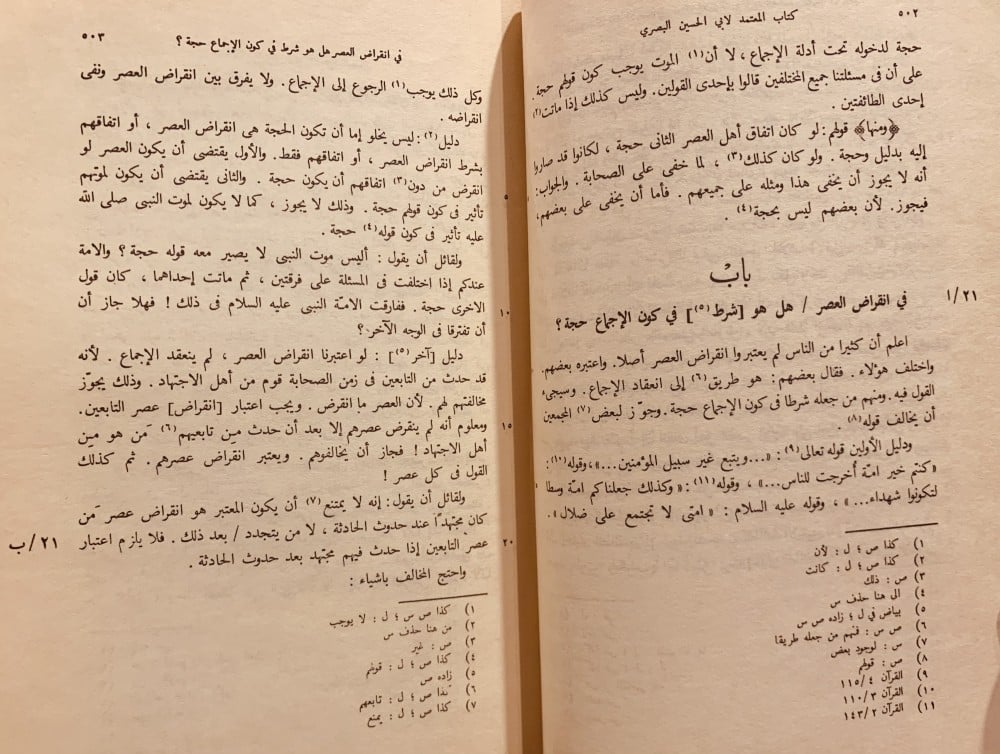 ٥٠٢
كتاب المعتمد لابي الحسين البصري
حجة لدخوله تحت أدلة الإجماع ، لا أن(١) الموت يوجب كون قولهم حجة .
على أن فى مسئلتنا جميع المختلفين قالوا بإحدى القولين . وليس كذلك إذا ماتت(٢)
إحدى الطائفتين .
﴿ومنها﴾ قولهم : لو كان اتفاق أهل العصر الثانى حجة ، لكانوا قد صاروا
إليه بدليل وحجة . ولو كان كذلك(٣) ، لما خفى على الصحابة . والجواب :
أنه لا يجوز أن يخفى هذا ومثله على جميعهم . فأما أن يخفى على بعضهم ،
فيجوز . لأن بعضهم ليس بحجة(٤) .
باب
في انقراض العصر / هل هو [شرط(٥)] في كون الإجماع حجة ؟
٢١/ا
اعلم أن كثيرا من الناس لم يعتبروا انقراض العصر أصلا . واعتبره بعضهم .
واختلف هؤلاء . فقال بعضهم : هو طريق(٦) إلى انعقاد الإجماع . وسيجىء
القول فيه . ومنهم من جعله شرطا فى كون الإجماع حجة . وجوّز لبعض(٧) المجمعين
أن يخالف قوله(٨) .
ودليل الأولين قوله تعالى(٩) : «...ويتبع غير سبيل المؤمنين...» ، وقوله(١٠) :
«كنتم خير امّة أخرجت للناس...» ، وقوله(١١) : «وكذلك جعلناكم امّة وسطا
لتكونوا شهداء...» ، وقوله عليه السلام : « امتى لا تجتمع على ضلال» .
١) كذا ص س ؛ ل : لأن
٢) كذا ص ؛ ل : كانت
٣) ص : ذلك
٤) الى هنا حذف س
٥) بياض في ل ؛ زاده ص س
٦) ص س : فمنهم من جعله طريقا
٧) س : لوجود بعض
٨) ص : قولهم
٩) القرآن ١١٥/٤
١٠) القرآن ١١٠/٣
١١) القرآن ١٤٣/٢
في انقراض العصر هل هو شرط في كون الإجماع حجة ؟
٥٠٣
وكل ذلك يوجب(١) الرجوع إلى الإجماع . ولا يفرق بين انقراض العصر ونفى
انقراضه .
دليل(٢) : ليس يخلو إما أن تكون الحجة هى انقراض العصر ، أو اتفاقهم
بشرط انقراض العصر ، أو اتفاقهم فقط . والأول يقتضى أن يكون العصر لو
انقرض من دون(٣) اتفاقهم أن يكون حجة . والثانى يقتضى أن يكون لموتهم
٥
تأثير فى كون قولهم حجة . وذلك لا يجوز ، كما لا يكون لموت النبى صلى الله
عليه تأثير فى كون قوله(٤) حجة .
ولقائل أن يقول : أليس موت النبى لا يصير معه قوله حجة ؟ والامة
عندكم إذا اختلفت فى المسئلة على فرقتين ، ثم ماتت إحداهما ، كان قول
الاخرى حجة . ففارقت الامّة النبى عليه السلام فى ذلك ! فهلا جاز أن
١٠
تفترقا فى الوجه الآخر ؟
دليل [آخر(٥)] : لو اعتبرنا انقراض العصر ، لم ينعقد الإجماع . لأنه
قد حدث من التابعين فى زمن الصحابة قوم من أهل الاجتهاد . وذلك يجوّز
مخالفتهم لهم . لأن العصر ما انقرض . ويجب اعتبار [انقراض] عصر التابعين .
ومعلوم أنه لم ينقرض عصرهم إلا بعد أن حدث من تابعيهم(٦) مَن هو من
١٥
أهل الاجتهاد ! فجاز أن يخالفوهم . ويعتبر انقراض عصرهم . ثم كذلك
القول فى كل عصر !
ولقائل أن يقول : إنه لا يمتنع(٧) أن يكون المعتبر هو انقراض عصر مَن
كان مجتهدًا عند حدوث الحادثة ، لا من يتجدد / بعد ذلك . فلا يلزم اعتبار
٢١/ب
عصر التابعين إذا حدث فيهم مجتهد بعد حدوث الحادثة .
٢٠
واحتج المخالف باشياء :
١) كذا ص س ؛ ل : لا يوجب
٢) من هنا حذف س
٣) ص : غير
٤) كذا ص ؛ ل : قولهم
٥) زاده ص
٦) كذا ص ؛ ل : تابعهم
٧) كذا ص ؛ ل : يمنع